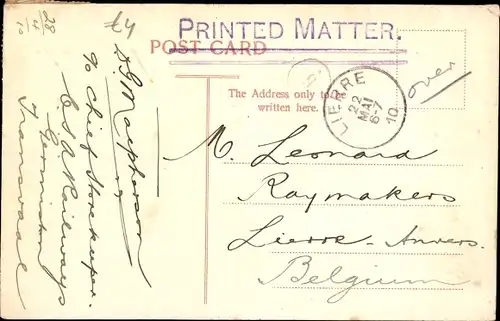 PRINTED MATTER.
POST CARD
The Address only to be
written here.
LIERRE
22
MAI
6-7
10
over
M. Leonard
Raymakers
Lierre - Anvers.
Belgium
28/4/10
D G Macpherson
c/o Chief Storekeeper.
C S A Railways
Germiston
Transvaal